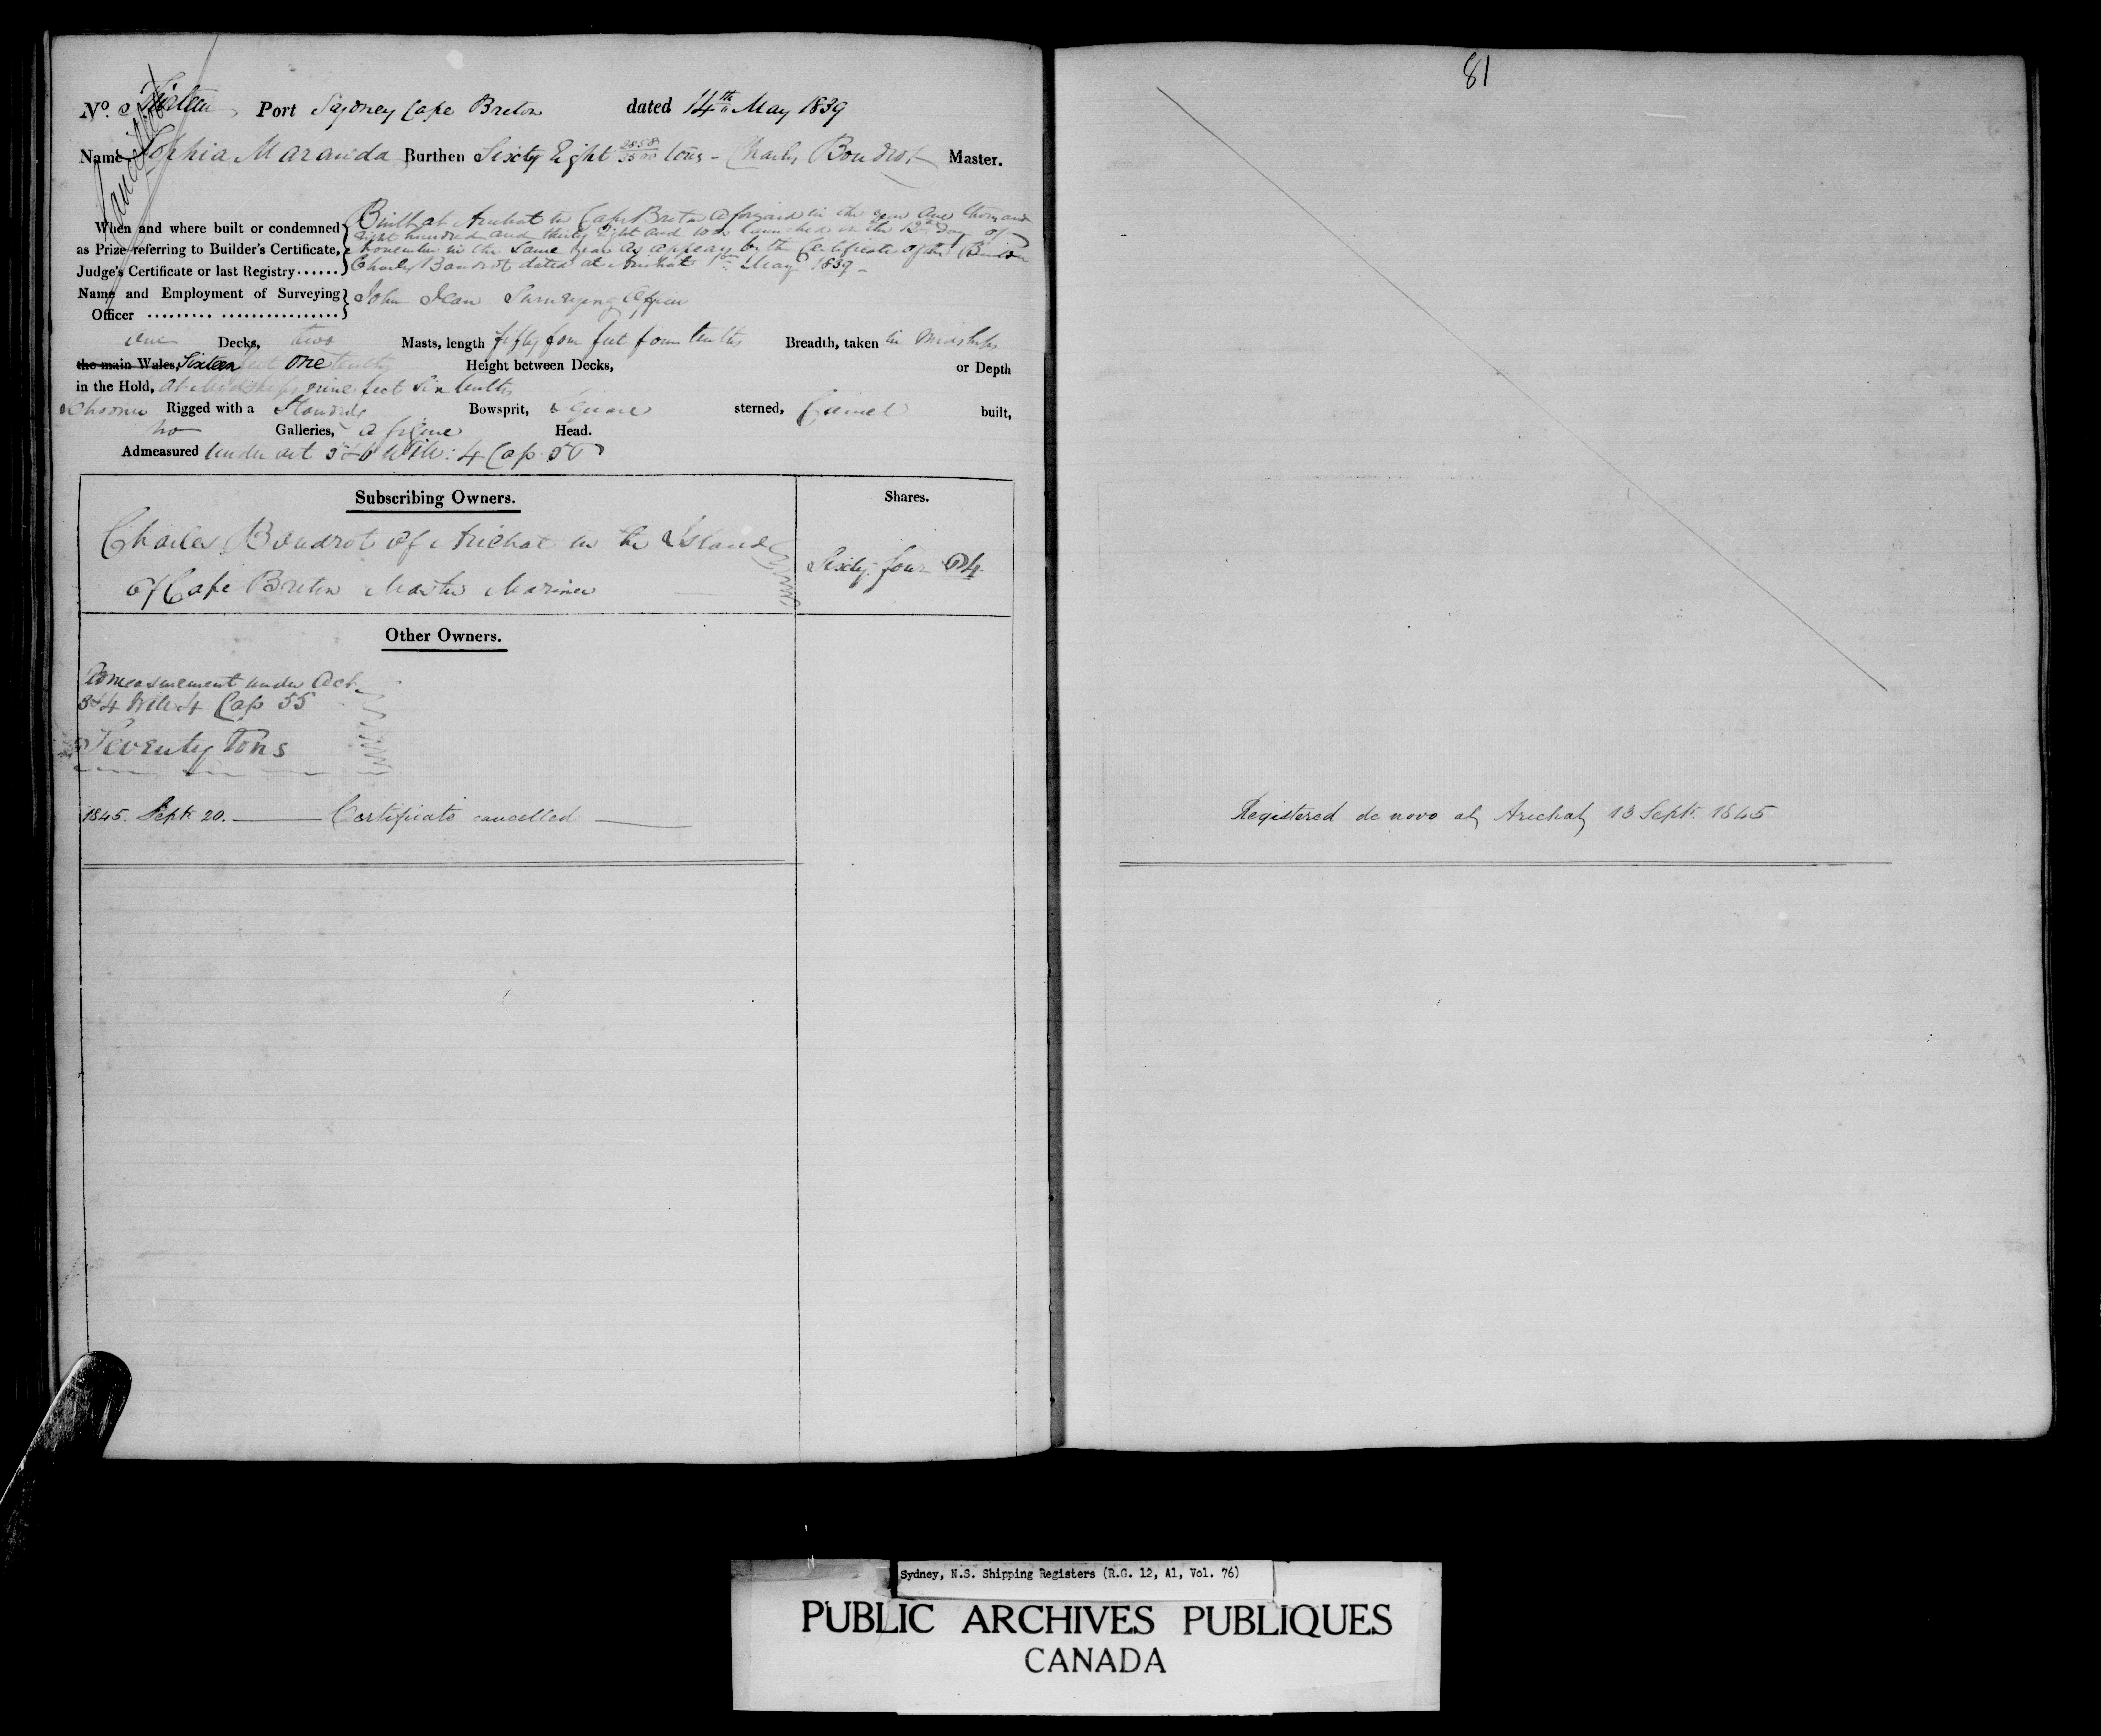 81
No. Port Sydney Cape Breton dated 14th May 1839
Cancelled
Name Sophia Maranda Burthen Sixty Eight tons - Charles Boudrot Master.
When and where built or condemned as Prize referring to Builder's Certificate, Judge's Certificate or last Registry......
Built at Arichat in Cape Breton aforesaid in the year One thousand
Eight hundred and thirty Eight and was launched on the 12th day of
November in the same year as appears by the Certificate of the Builder
Charles Boudrot dated at Arichat May 1839 -
Name and Employment of Surveying Officer ......... ................
John Jean Surveying Officer
one Decks, two Masts, length fifty four feet four tenths Breadth, taken in Midships
the main Wales, Sixteen feet One tenths Height between Decks, or Depth
in the Hold, at Midships nine feet six tenths
Schooner Rigged with a Standing Bowsprit, Square sterned, Carvel built,
no Galleries, a figure Head.
Admeasured Under act 5 & 6 Will: 4 Cap 56
Subscribing Owners. Shares.
Charles Boudrot of Arichat in the Island
of Cape Breton Master Mariner
Sixty four 64
Other Owners.
Admeasurement under Act
3 & 4 Will 4 Cap 55
Seventy Tons
1845. Sept. 20. Certificate cancelled
Registered de novo at Arichat 13 Sept. 1845
Sydney, N.S. Shipping Registers (R.G. 12, A1, Vol. 76)
PUBLIC ARCHIVES PUBLIQUES
CANADA